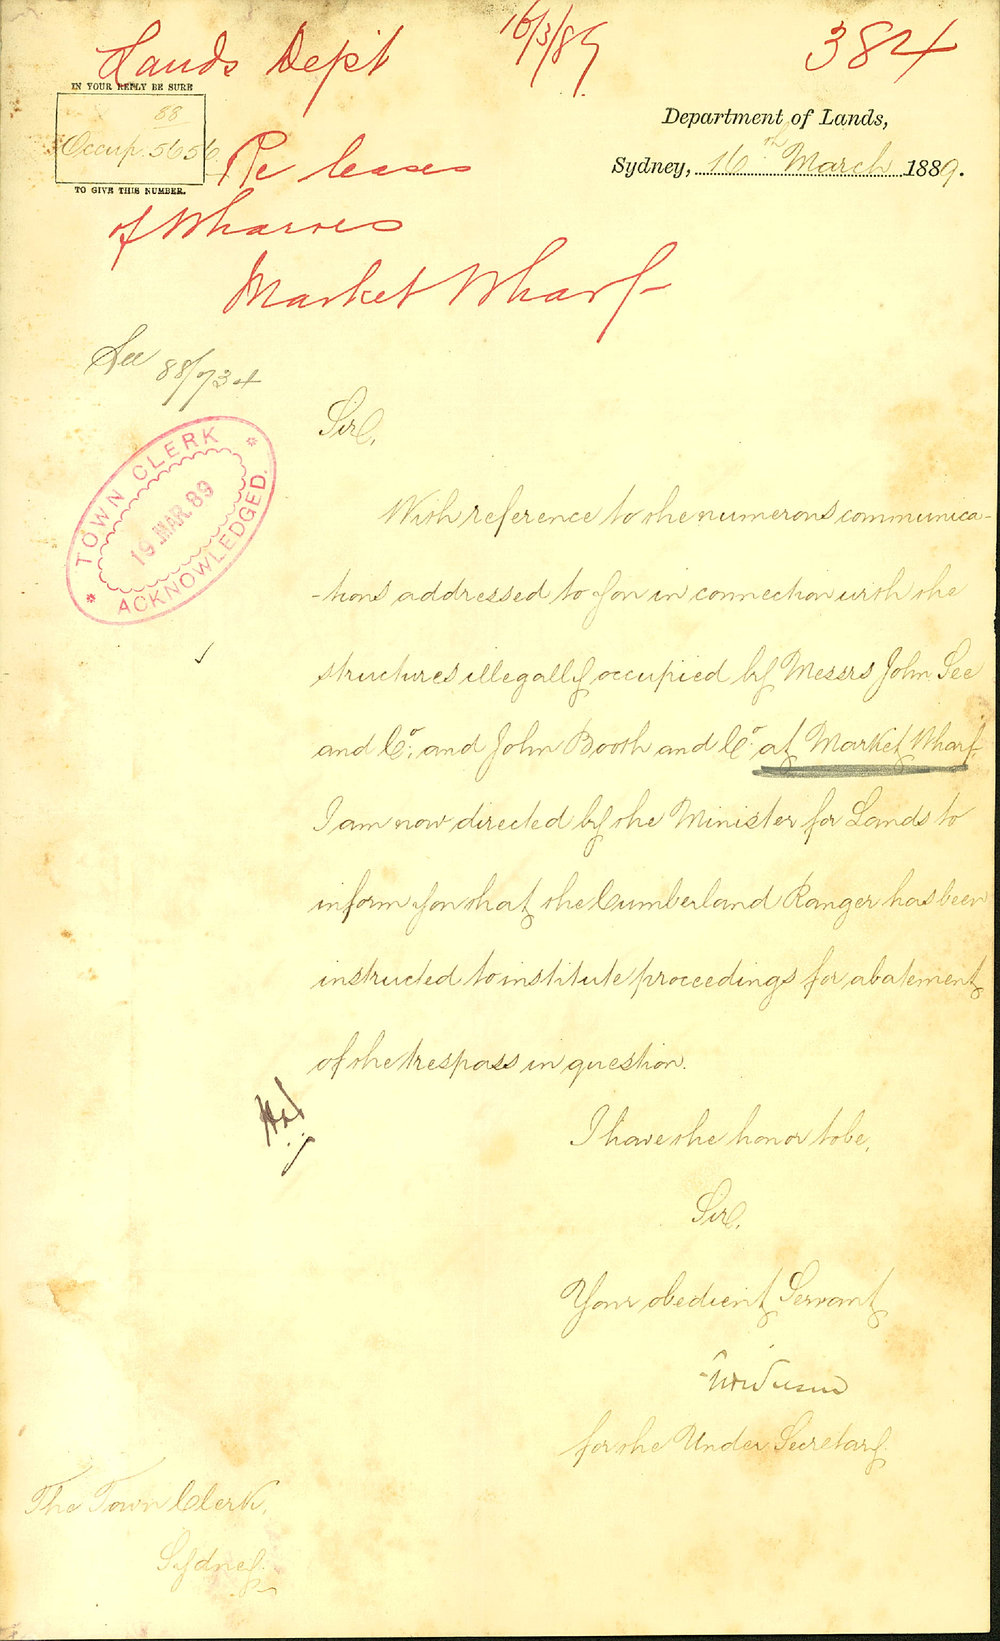 Lands Dept 16/3/89 384
IN YOUR REPLY BE SURE
88
Occup. 5656
TO GIVE THIS NUMBER.
Department of Lands,
Sydney, 16th March 1889.
Re leases
of Wharves
Market Wharf
See 88/734
TOWN CLERK
19 MAR. 89
ACKNOWLEDGED.
Sir,
With reference to the numerous communica-
-tions addressed to you in connection with the
structures illegally occupied by Messrs John See
and Co. and John Booth and Co. at Market Wharf.
I am now directed by the Minister for Lands to
inform you that the Cumberland Ranger has been
instructed to institute proceedings for abatement
of the trespass in question.
I have the honor to be,
Sir,
Your obedient Servant
for the Under Secretary.
The Town Clerk,
Sydney.